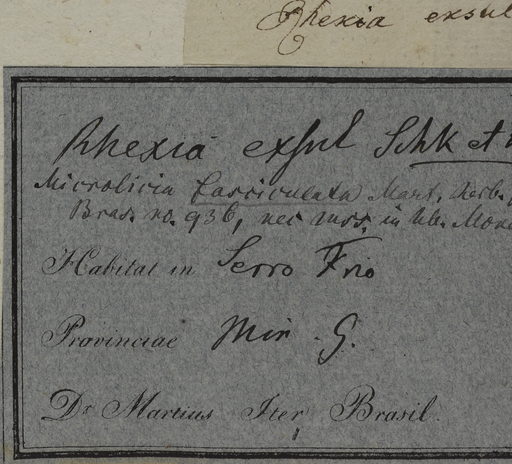 Rhexia exsul
Rhexia exsul Schk et
Microlicia fasciculata Mart. Herb.
Bras. no. 936, nec mss. in hb. Mona
Habitat in Serro Frio
Provinciae Min. G.
Dr. Martius Iter Brasil.